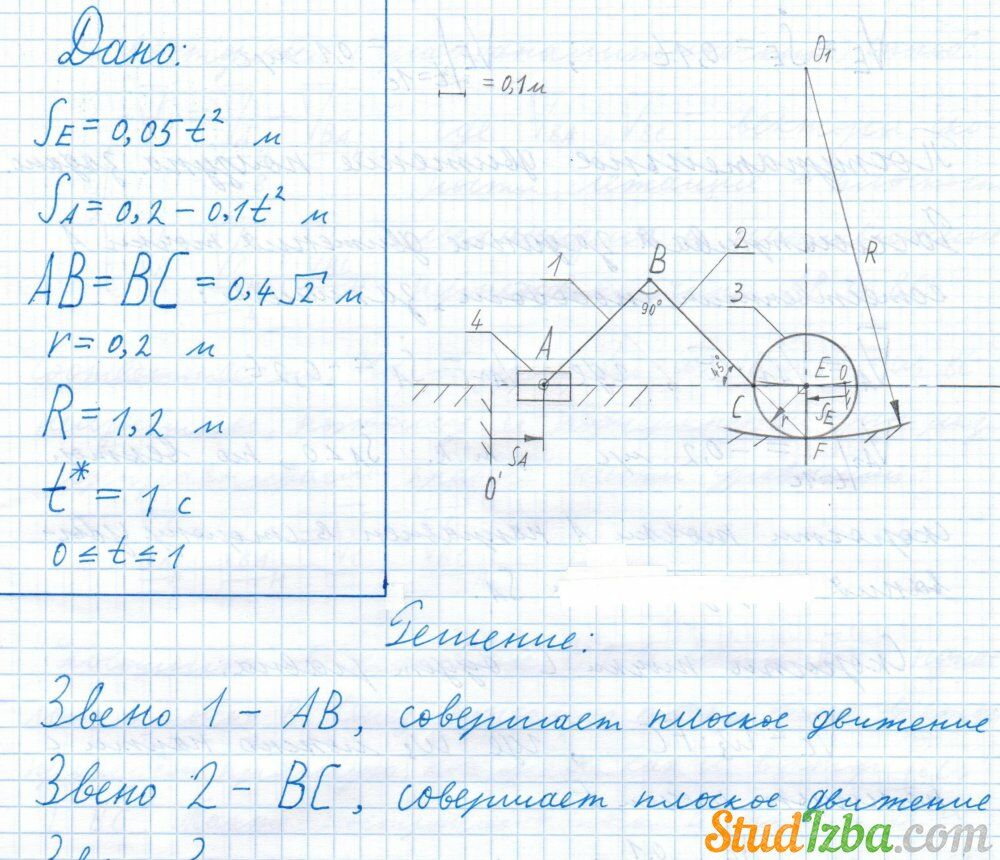 Дано:
S_E = 0,05t² м
S_A = 0,2 - 0,1t² м
AB = BC = 0,4√2 м
r = 0,2 м
R = 1,2 м
t* = 1 с
0 ≤ t ≤ 1
= 0,1 м
O₁
R
1
B
2
90°
3
4
A
45°
E
O
C
r
S_E
F
S_A
O'
Решение:
Звено 1 - AB, совершает плоское движение
Звено 2 - BC, совершает плоское движение
StudIzba.com